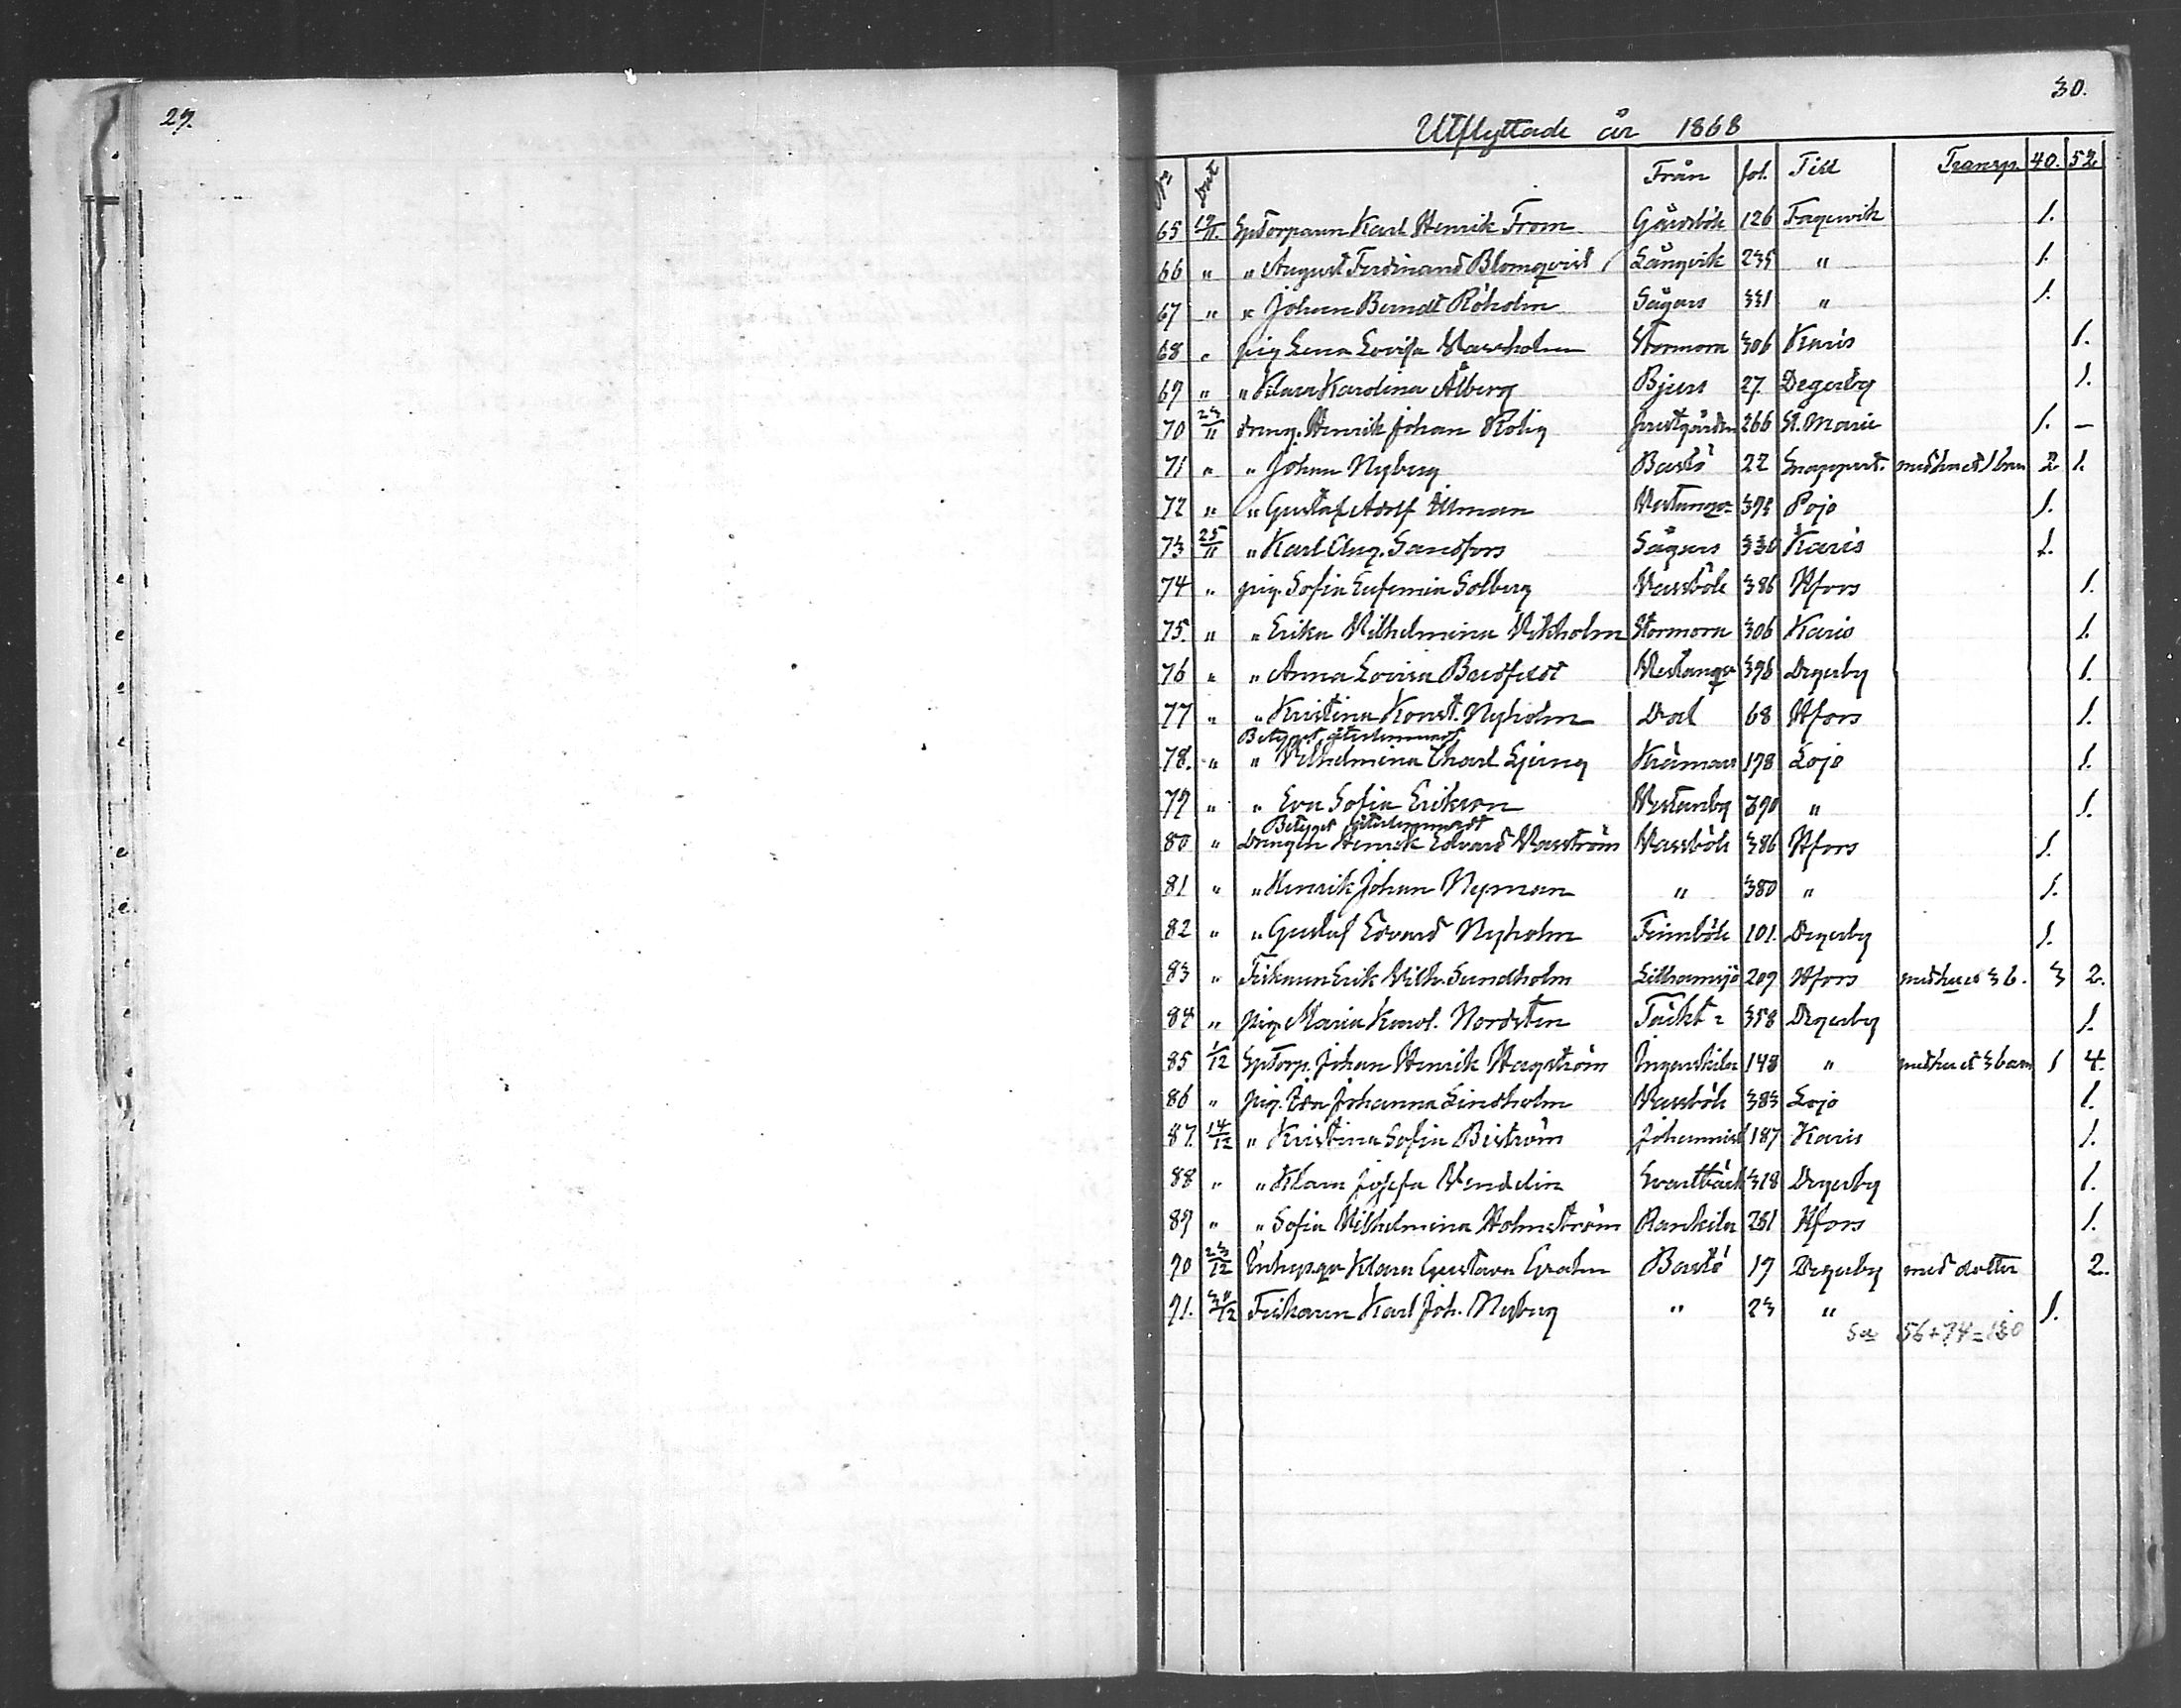 29.
30.
Utflyttade år 1868
No dat Från fol. Till Transp. 40. 52
65 19/11. Sptorparen Karl Henrik From Gårdsböle 126 Fagervik 1.
66 " " August Ferdinand Blomqvist Långvik 235 " 1.
67 " " Johan Berndt Röholm Sågars 331 " 1.
68 " pig Lena Lovisa Vassholm Stormora 306 Karis 1.
69 " " Klara Karolina Åberg Bjers 27. Degerby 1.
70 23/11 dreng. Henrik Johan Rolig prestgården 266 St. Marie 1. —
71 " " Johan Nyberg Bastö 22 Snappert. med hu et 1 barn 2 1.
72 " " Gustaf Adolf Ulman 393 Pojo 1.
73 25/11 " Karl Aug. Sandfors Sågars 330 Karis 1.
74 " pig. Sofia Eufemia Solberg Vassböle 386 Hfors 1.
75. " " Erika Vilhelmina Vikholm Stormora 306 Karis 1.
76 " " Anna Lovisa Bredfeldt 396 Degerby 1.
77 " " Kristina Konst. Nyholm Dal 68 Hfors 1.
Betyget återlemnadt
78. " " Vilhelmina Charl Ljung Krämars 198 Lojo 1.
79 " " Eva Sofia Erikson Vestanby 390 " 1.
Betyget återlemnadt
80 " Drengen Henrik Edvard Vasström Vassböle 386 Hfors 1.
81 " " Henrik Johan Nyman " 380 " 1.
82 " " Gustaf Edvard Nyholm Finnböle 101. Degerby 1.
83 " Fiskaren Erik Vilh. Sundholm Lillramsjö 209 Hfors med hu et 3 b. 3 2.
84 " pig. Maria Karol. Nordsten Täckt = 358 Degerby 1.
85 1/12 Sptorp. Johan Henrik Hagström Ingarskila 148 " med hu et 3 barn 1 4.
86 " pig. Ida Johanna Lindholm Vassböle 383 Lojo 1.
87. 14/12 " Kristina Sofia Biström 187 Karis 1.
88 " " Klara Josefa Vendelin Svartbäck 318 Degerby 1.
89 " " Sofia Vilhelmina Holmström Rankila 281 Hfors 1.
90 23/12 Inhysqv Klara Gustava Grahn Bastö 19 Degerby med dotter 2.
91. 30/12 Fiskaren Karl Joh. Nyberg " 23 " 1.
Sa 56+74=130